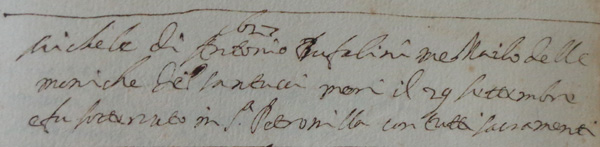 Michele di Antonio Bufalini
moniche del Santucci morì il 29 settembre
e fu sotterrato in S. Petronilla con tutti sacramenti